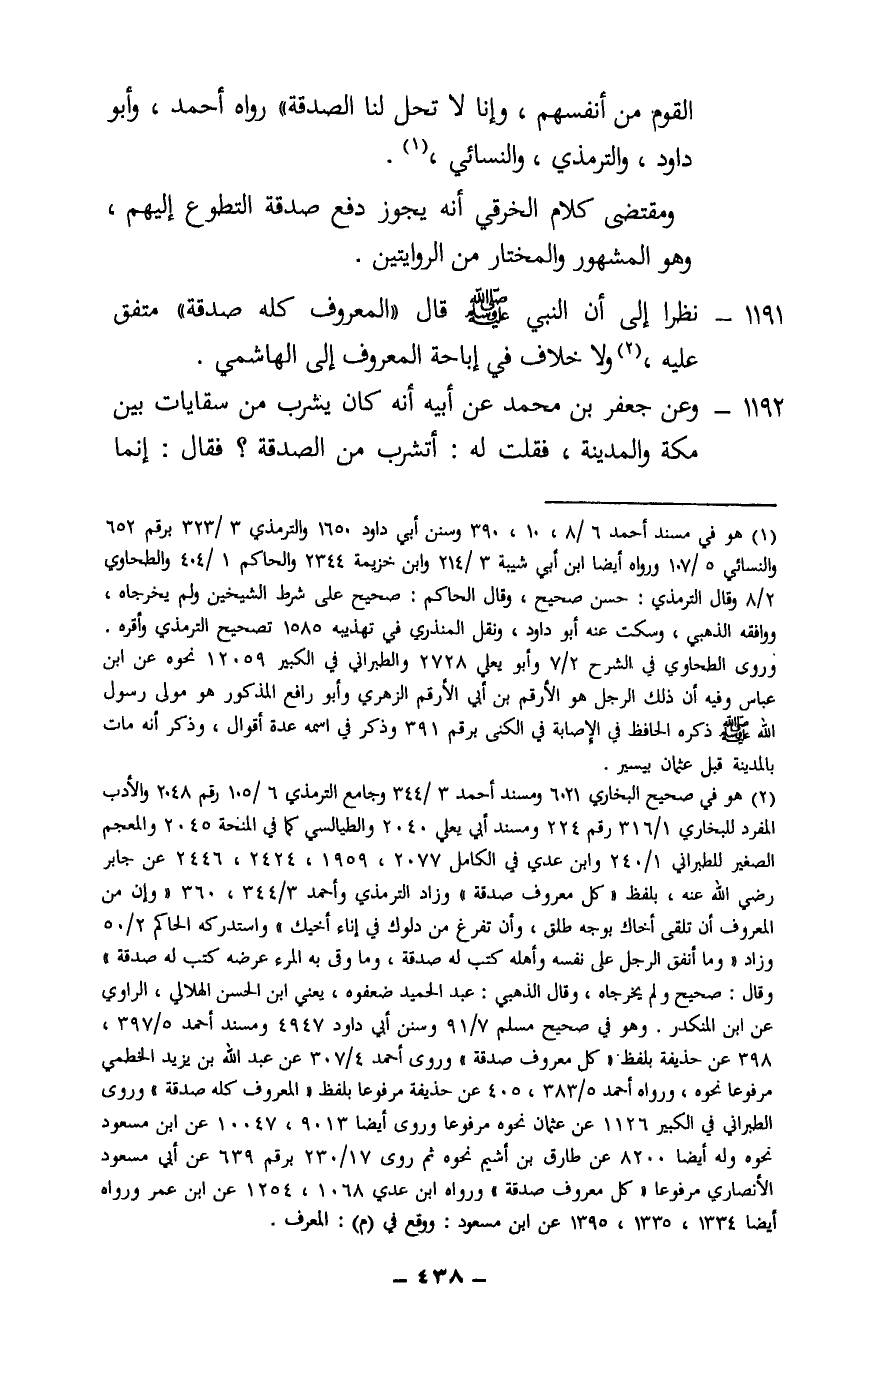 القوم من أنفسهم ، وإنا لا تحل لنا الصدقة» رواه أحمد ، وأبو
داود ، والترمذي ، والنسائي ،(١) .
ومقتضى كلام الخرقي أنه يجوز دفع صدقة التطوع إليهم ،
وهو المشهور والمختار من الروايتين .
١١٩١ – نظرا إلى أن النبي ﷺ قال «المعروف كله صدقة» متفق
عليه ،(٢) ولا خلاف في إباحة المعروف إلى الهاشمي .
١١٩٢ – وعن جعفر بن محمد عن أبيه أنه كان يشرب من سقايات بين
مكة والمدينة ، فقلت له : أتشرب من الصدقة ؟ فقال : إنما
(١) هو في مسند أحمد ٦ /٨ ، ١٠ ، ٣٩٠ وسنن أبي داود ١٦٥٠ والترمذي ٣ /٣٢٣ برقم ٦٥٢
والنسائي ٥ /١٠٧ ورواه أيضا ابن أبي شيبة ٣ /٢١٤ وابن خزيمة ٢٣٤٤ والحاكم ١ /٤٠٤ والطحاوي
٨/٢ وقال الترمذي : حسن صحيح ، وقال الحاكم : صحيح على شرط الشيخين ولم يخرجاه ،
ووافقه الذهبي ، وسكت عنه أبو داود ، ونقل المنذري في تهذيبه ١٥٨٥ تصحيح الترمذي وأقره .
وروى الطحاوي في الشرح ٧/٢ وأبو يعلي ٢٧٢٨ والطبراني في الكبير ١٢٠٥٩ نحوه عن ابن
عباس وفيه أن ذلك الرجل هو الأرقم بن أبي الأرقم الزهري وأبو رافع المذكور هو مولى رسول
الله ﷺ ذكره الحافظ في الإصابة في الكنى برقم ٣٩١ وذكر في اسمه عدة أقوال ، وذكر أنه مات
بالمدينة قبل عثمان بيسير .
(٢) هو في صحيح البخاري ٦٠٢١ ومسند أحمد ٣ /٣٤٤ وجامع الترمذي ٦ /١٠٥ رقم ٢٠٤٨ والأدب
المفرد للبخاري ٣١٦/١ رقم ٢٢٤ ومسند أبي يعلي ٢٠٤٠ والطيالسي كما في المنحة ٢٠٤٥ والمعجم
الصغير للطبراني ٢٤٠/١ وابن عدي في الكامل ٢٠٧٧ ، ١٩٥٩ ، ٢٤٢٤ ، ٢٤٤٦ عن جابر
رضي الله عنه ، بلفظ « كل معروف صدقة » وزاد الترمذي وأحمد ٣٤٤/٣ ، ٣٦٠ « وإن من
المعروف أن تلقى أخاك بوجه طلق ، وأن تفرغ من دلوك في إناء أخيك » واستدركه الحاكم ٥٠/٢
وزاد « وما أنفق الرجل على نفسه وأهله كتب له صدقة ، وما وقى به المرء عرضه كتب له صدقة »
وقال : صحيح ولم يخرجاه ، وقال الذهبي : عبد الحميد ضعفوه ، يعني ابن الحسن الهلالي ، الراوي
عن ابن المنكدر . وهو في صحيح مسلم ٩١/٧ وسنن أبي داود ٤٩٤٧ ومسند أحمد ٣٩٧/٥ ،
٣٩٨ عن حذيفة بلفظ « كل معروف صدقة » وروى أحمد ٣٠٧/٤ عن عبد الله بن يزيد الخطمي
مرفوعا نحوه ، ورواه أحمد ٣٨٣/٥ ، ٤٠٥ عن حذيفة مرفوعا بلفظ « المعروف كله صدقة » وروى
الطبراني في الكبير ١١٢٦ عن عثمان نحوه مرفوعا وروى أيضا ٩٠١٣ ، ١٠٠٤٧ عن ابن مسعود
نحوه وله أيضا ٨٢٠٠ عن طارق بن أشيم نحوه ثم روى ٢٣٠/١٧ برقم ٦٣٩ عن أبي مسعود
الأنصاري مرفوعا « كل معروف صدقة » ورواه ابن عدي ١٠٦٨ ، ١٢٥٤ عن ابن عمر ورواه
أيضا ١٣٣٤ ، ١٣٣٥ ، ١٣٩٥ عن ابن مسعود : ووقع في (م) : المعرف .
– ٤٣٨ –